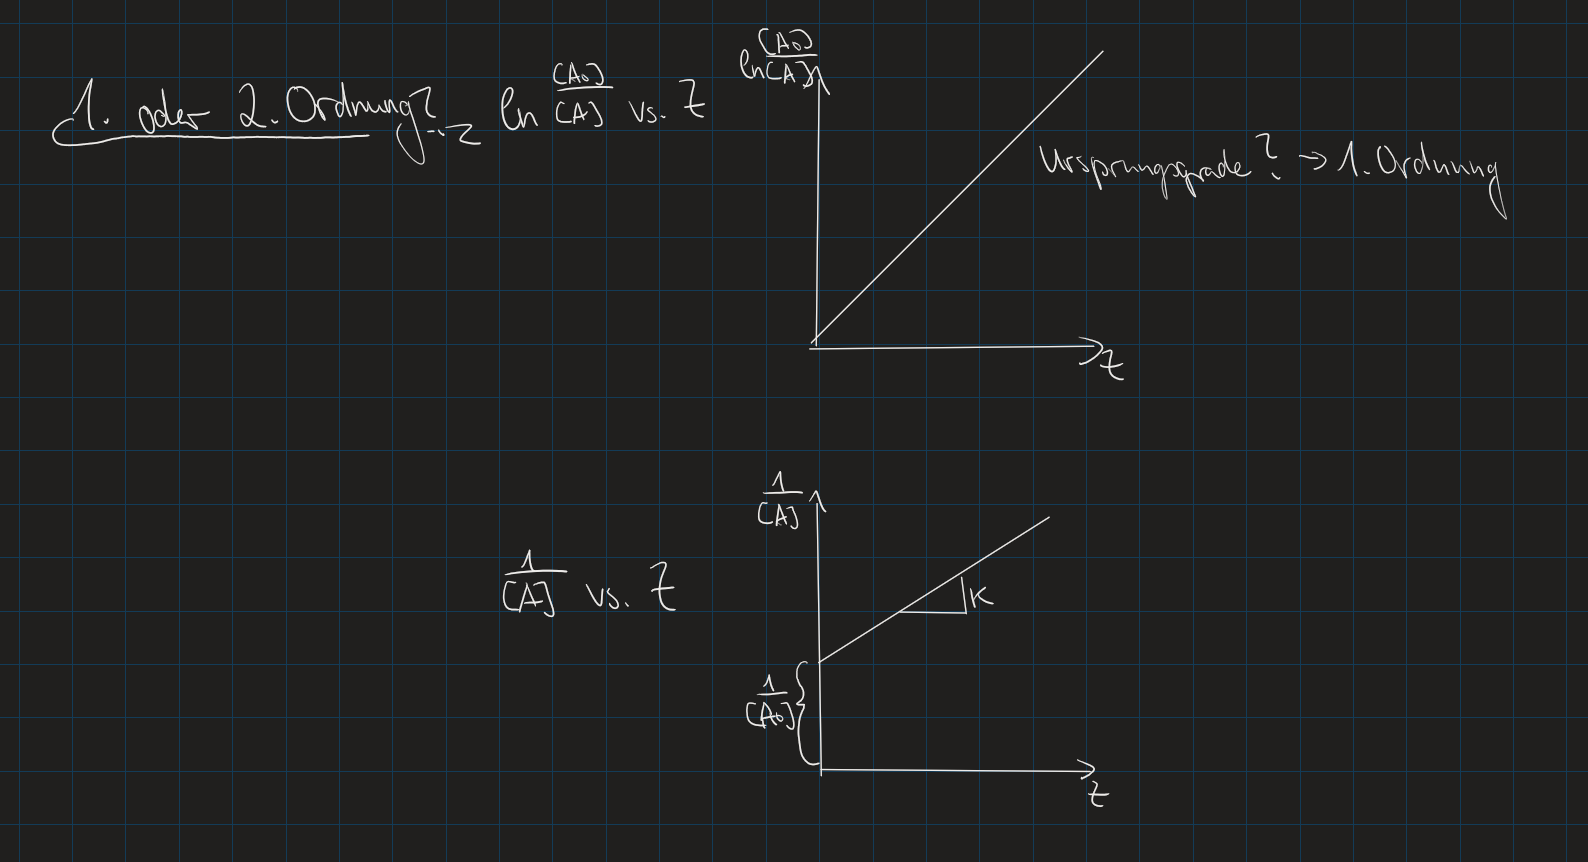 1. oder 2. Ordnung? → ln [A₀]/[A] vs. t
ln [A₀]/[A]
Ursprungsgrade? → 1. Ordnung
t
1/[A] vs. t
1/[A]
K
1/[A₀]
t